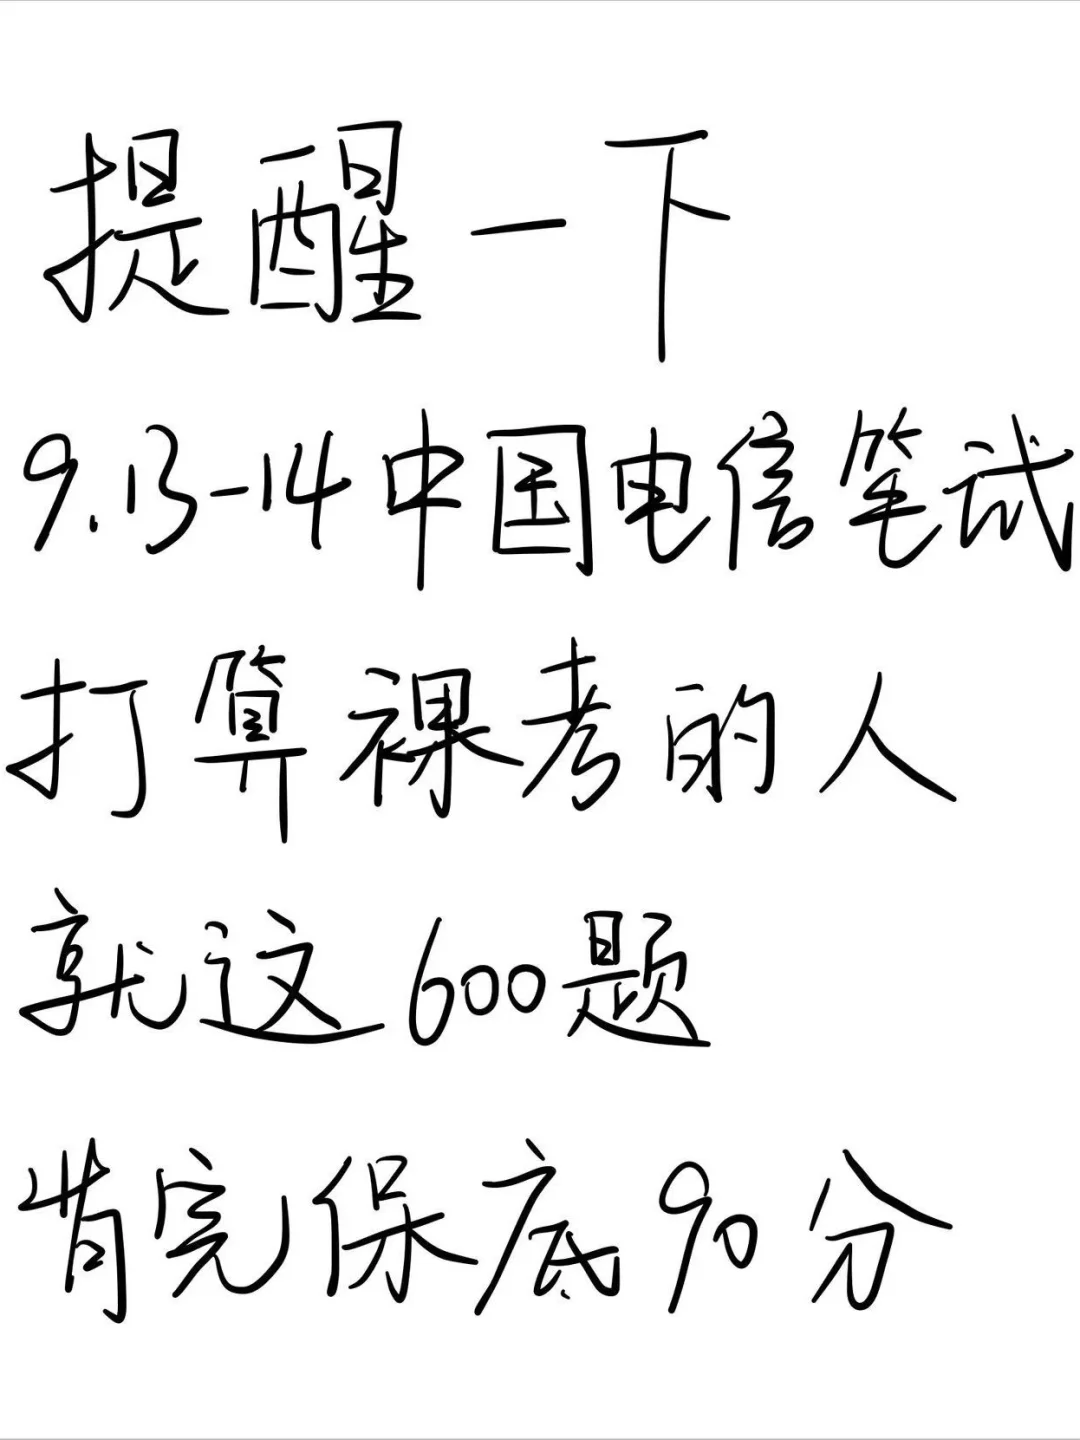 提醒一下
9.13-14中国电信笔试
打算裸考的人
就这600题
背完保底90分